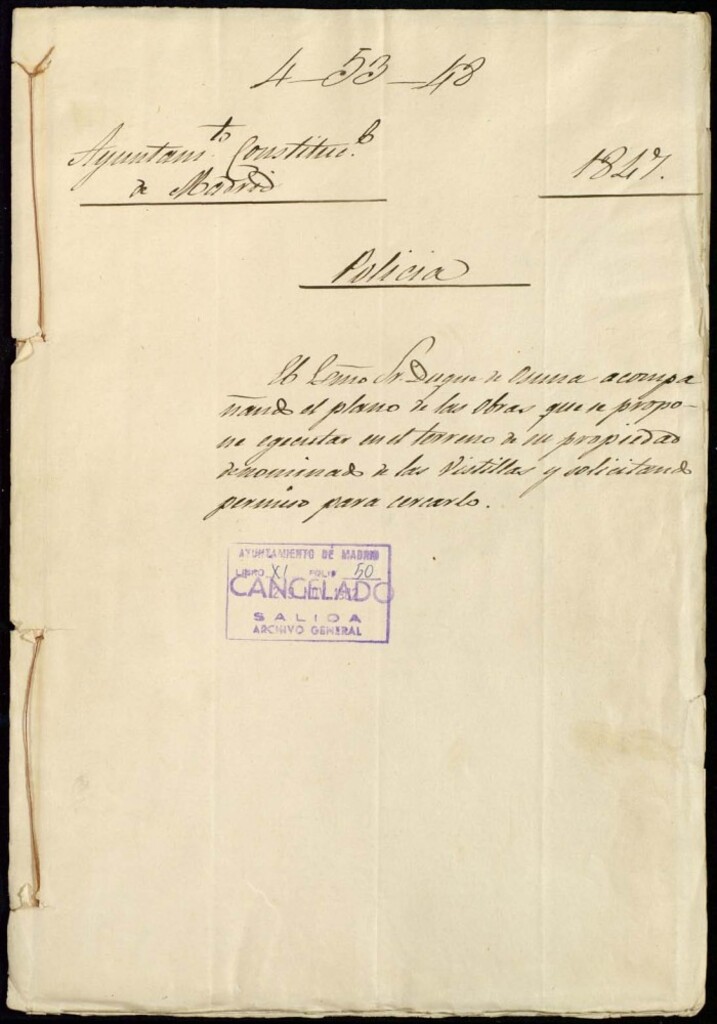 4-53-48
Ayuntam.to Constituc.l
de Madrid
1847.
Policia
El Exmo Sr. Duque de Osuna acompa
ñando el plano de las obras que se propo-
ne egecutar en el terreno de su propiedad
denominado de las Vistillas y solicitando
permiso para cercarlo.
AYUNTAMIENTO DE MADRID
LIBRO XI FOLIO 50
CANCELADO
SALIDA
ARCHIVO GENERAL